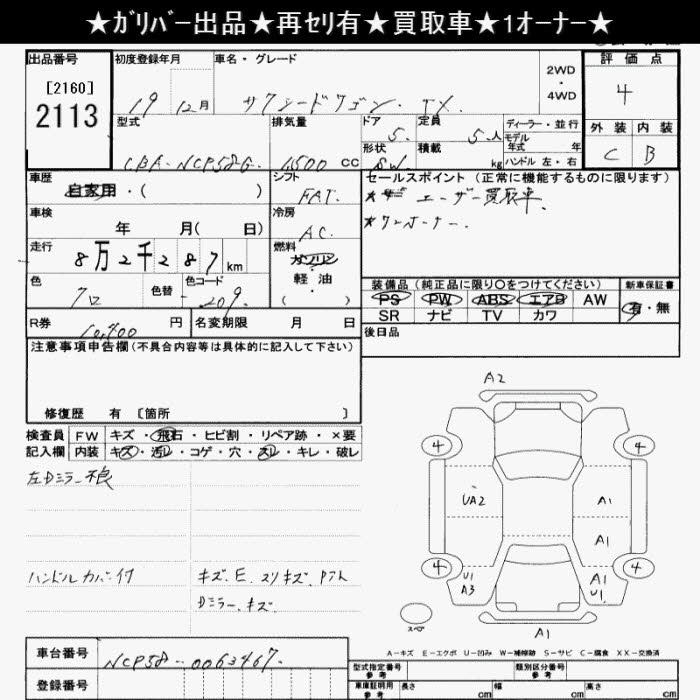 ★ガリバー出品★再セリ有★買取車★1オーナー★
出品番号 初度登録年月 車名・グレード 2WD ・ 4WD 評価点
[2160]
2113 19 12月 サクシードワゴン. TX. 4
型式 排気量 ドア 5. 定員 5人 ディーラー・並行 外装 内装
CBA-NCP58G. 1500 cc 形状 SW 積載 kg モデル年式 年 ハンドル 左・右 C B
車歴 自家用・( ) シフト FAT. セールスポイント(正常に機能するものに限ります)
車検 年 月( 日) 冷房 AC. ★ユーザー買取車.
★ワンオーナー.
走行 8万2千287km 燃料 ガソリン 軽油 ( )
色 クロ 色替 色コード 209. 装備品(純正品に限り○をつけてください) 新車保証書
PS PW ABS エアB AW 有・無
SR ナビ TV カワ
R券 10,400 円 名変期限 月 日 後日品
注意事項申告欄(不具合内容等は具体的に記入して下さい)
修復歴 有 [箇所 ]
検査員 FW キズ・飛石・ヒビ割・リペア跡・×要
記入欄 内装 キズ・汚レ・コゲ・穴・スレ・キレ・破レ
左Dミラー不良
ハンドルカバー付 キズ.E.スリキズ.Pアト
Dミラー.キズ
A2
4 4
UA2 A1
A1
4 4
U1 A3 A1 U1
スペア A1
A-キズ E-エクボ U-凹み W-補修跡 S-サビ C-腐食 XX-交換済
車台番号 NCP58-0063467.
登録番号
型式指定番号 参考 類別区分番号 参考
車庫証明用 参考 長さ cm 幅 cm 高さ cm